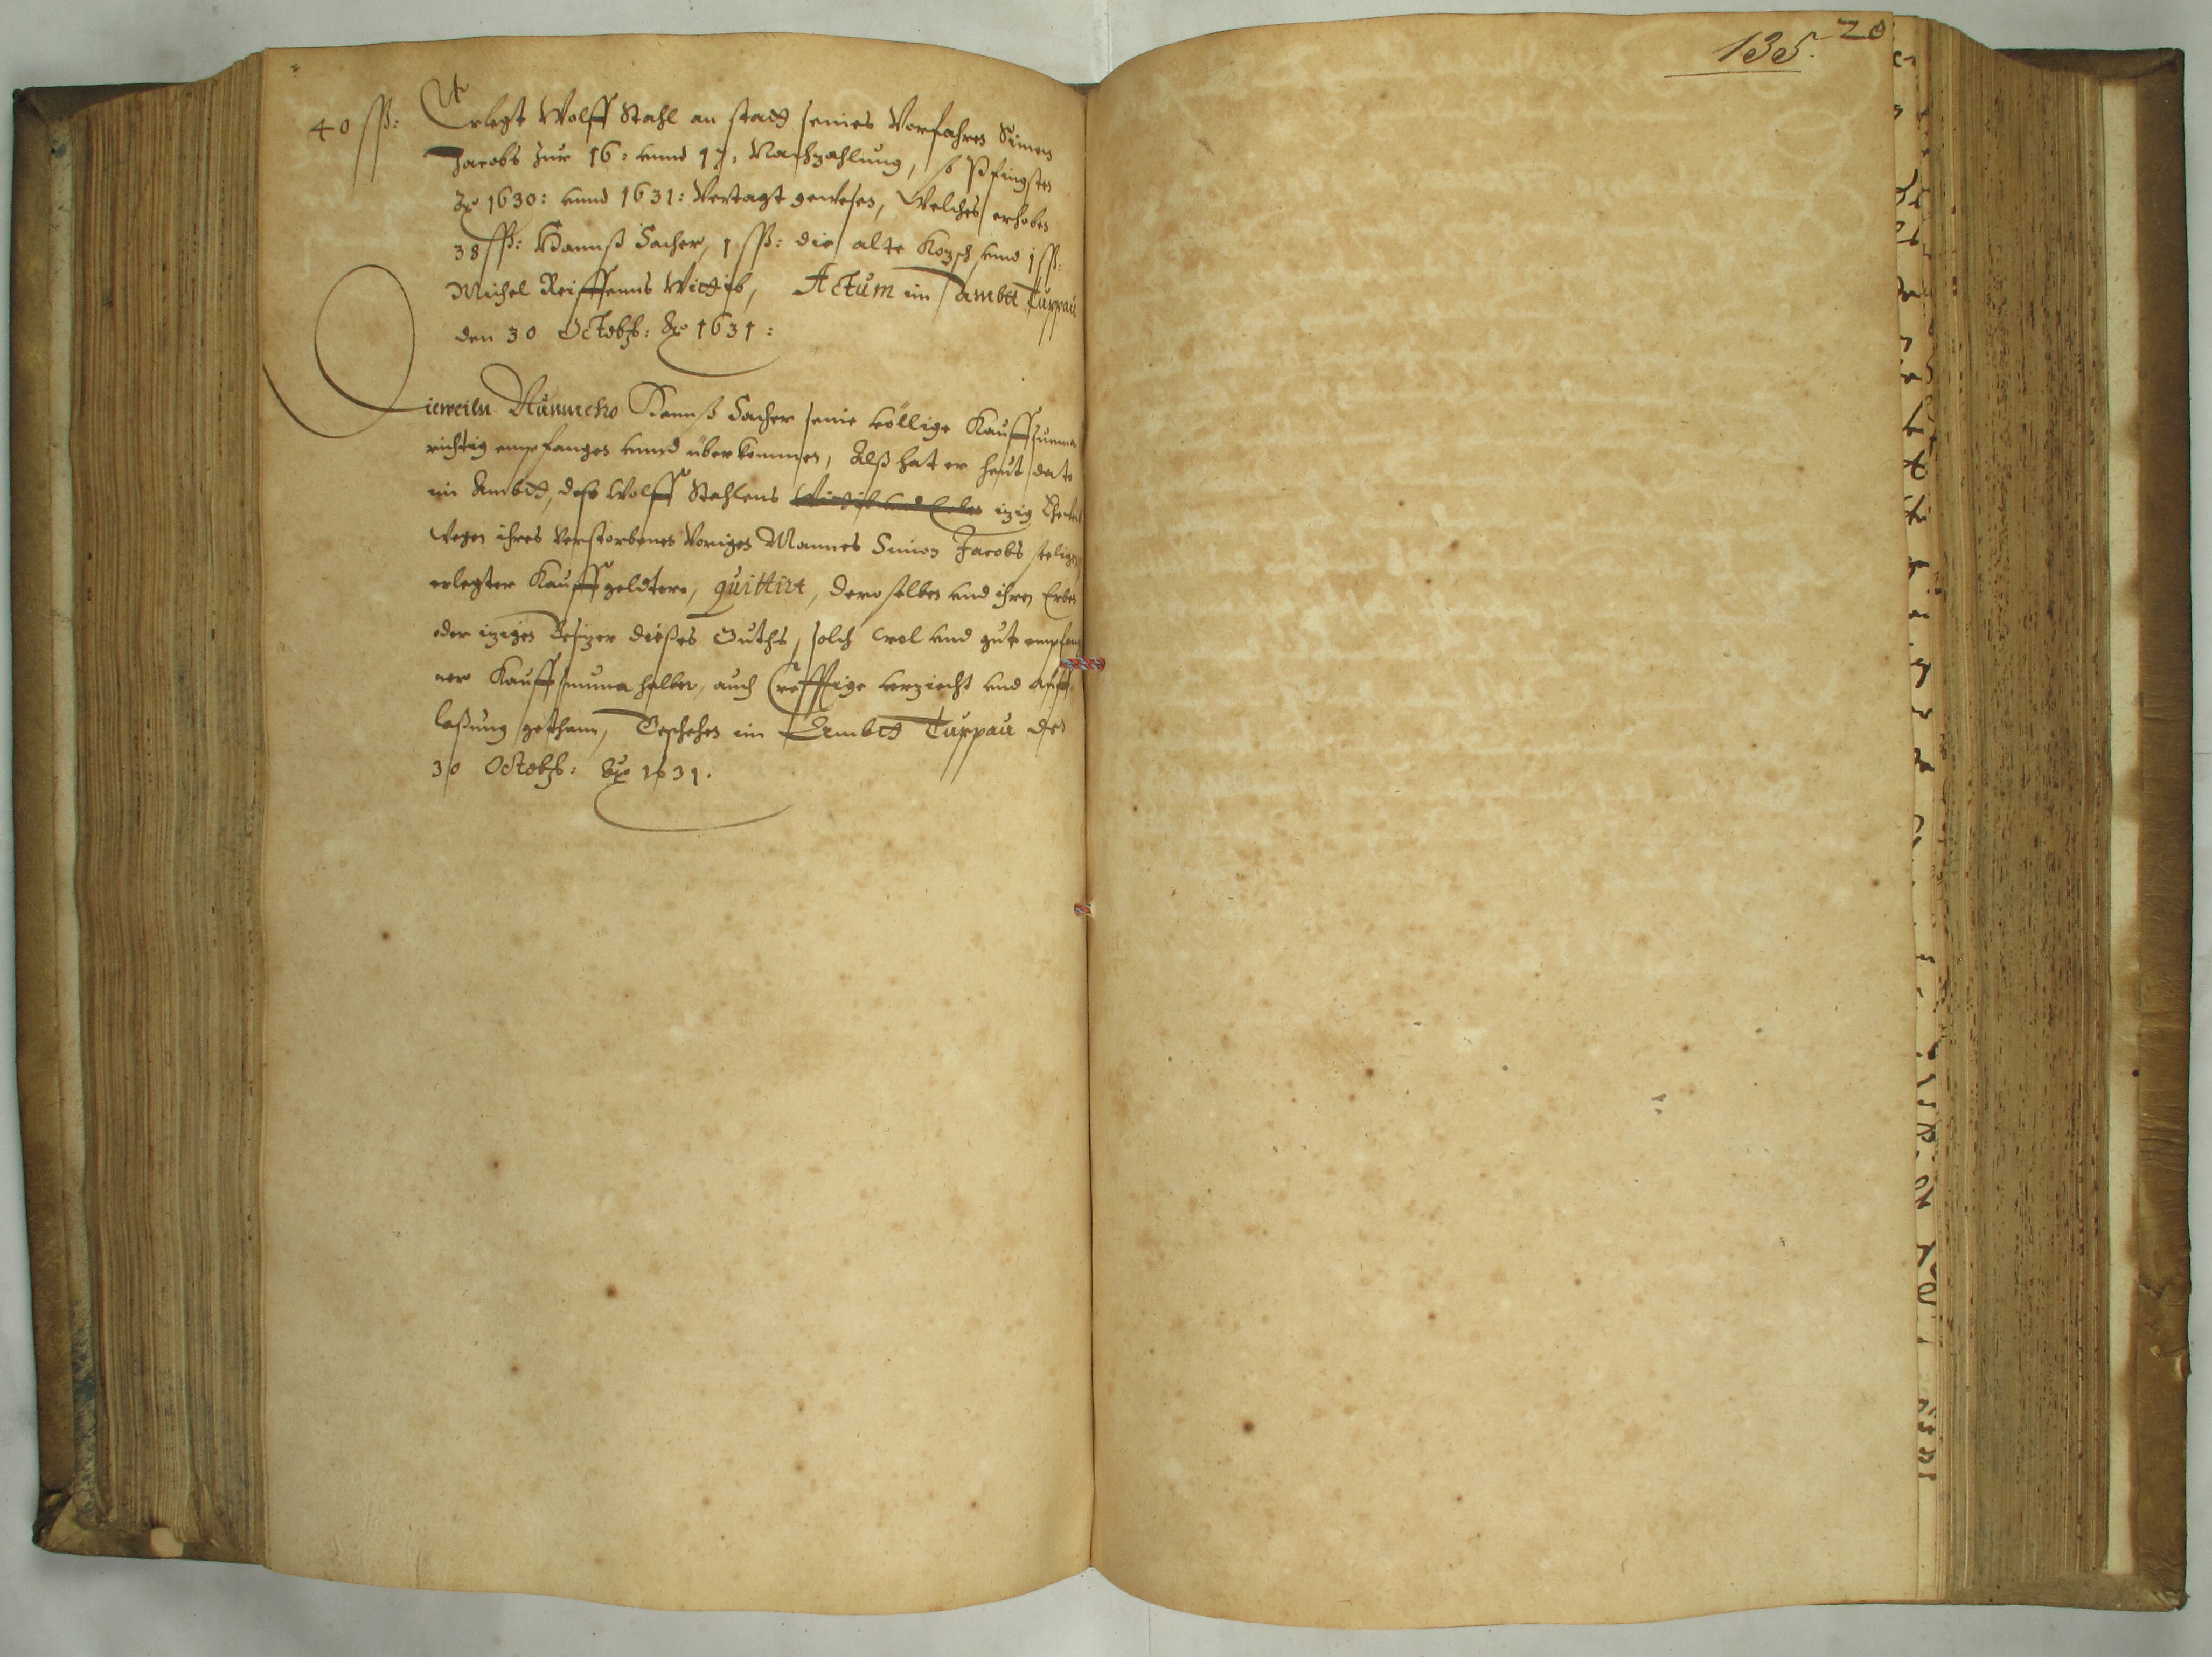 40 ßß: Erlegt Wolff Stahl an stadt seines Vorfahren Simon
Jacobs zur 16: unnd 17: Nachzahlung, so Pfingsten
Ao 1630: unnd 1631: Vertagt gewesen, Welches erhoben
38 ßß: Hannß Sacher, 1 ßß: die alte und 1 ßß:
Michel Reiffenns Wittib, Actum im Ambtt Tuppau
den 30 Octobß: Ao 1631:
Dieweiln Nunmeho Hannß Sacher seine völlige Kauffsumma
richtig empfangen unnd überkommen, Alß hat er heut dato
im Ambtt, deß Wolff Stahlens Wittib und Erben izig
wegen ihres verstorbenen Vorigen Mannes Simon Jacobs seeligen
erlegter Kauffgeldtere, quittirt, dero selben und ihren Erben
oder izigen Besizer dieses Guths, solch wol und gut empfang
ner Kauffsumma halber, auch Creffftige verziecht und auff
laßung gethann, Geschehen im Ambtt Tuppau den
30 Octobß: Ao 1631.
135. 20